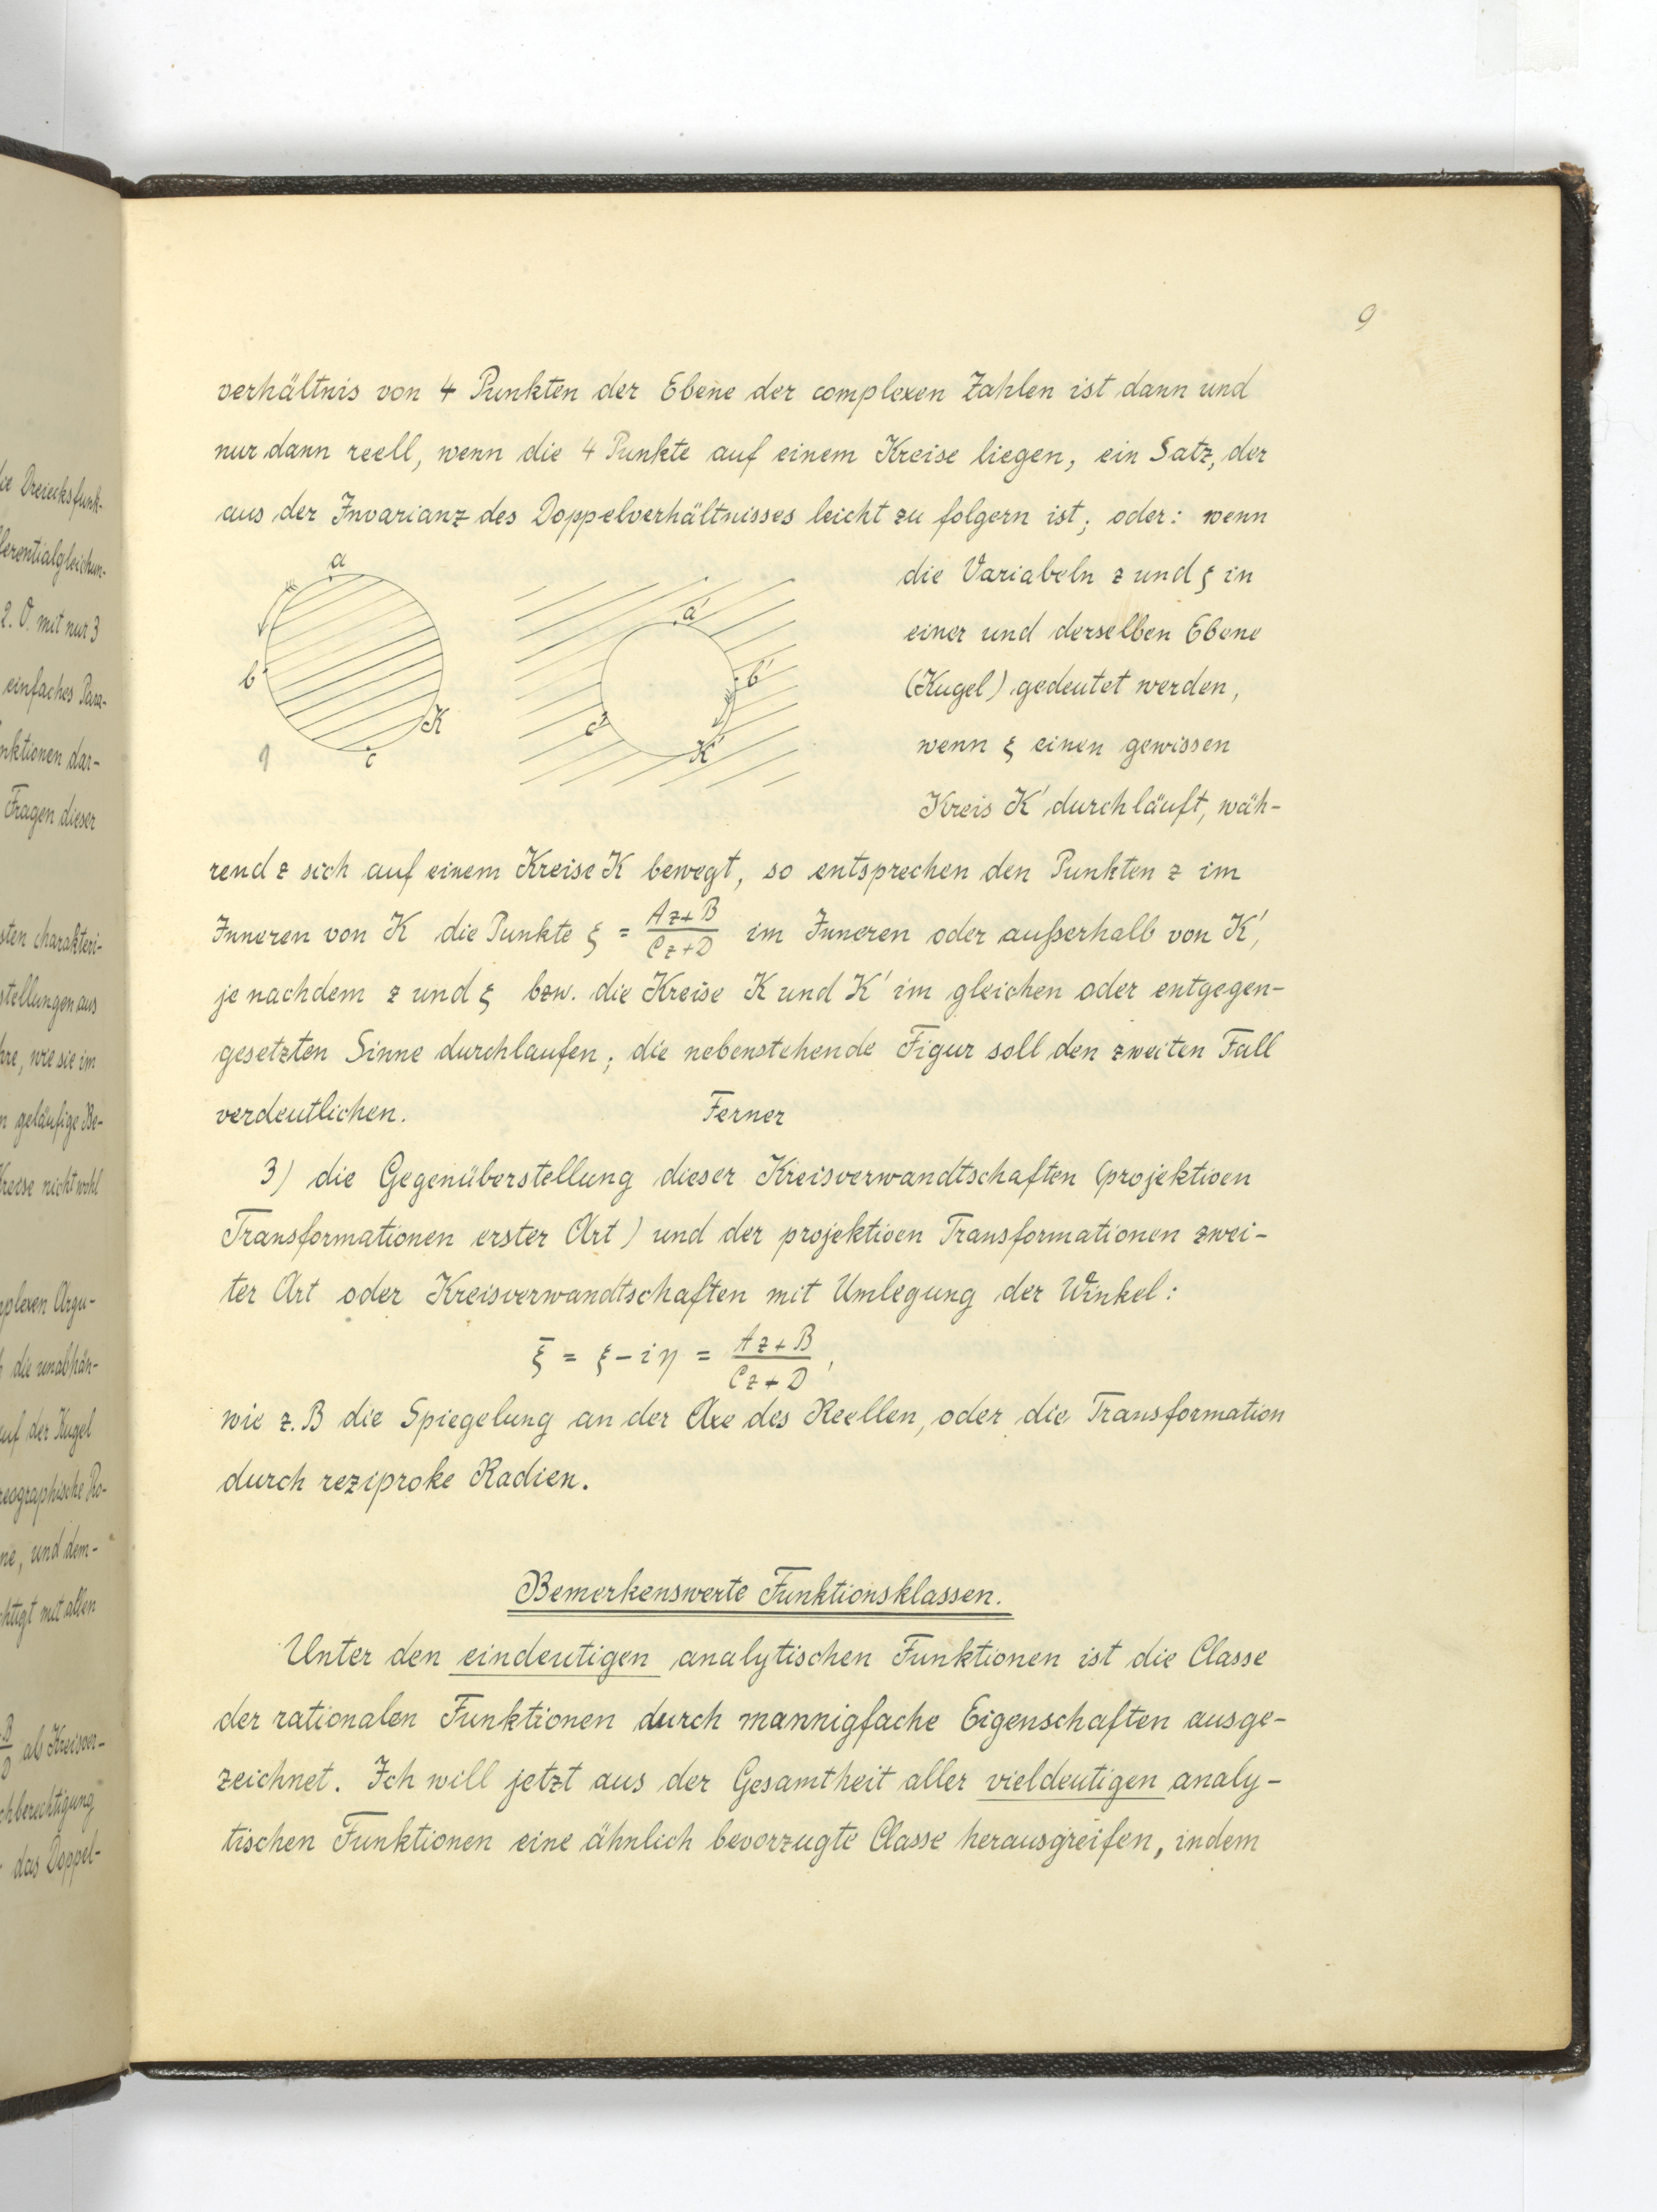 9
verhältnis von 4 Punkten der Ebene der complexen Zahlen ist dann und
nur dann reell, wenn die 4 Punkte auf einem Kreise liegen, ein Satz, der
aus der Invarianz des Doppelverhältnisses leicht zu folgern ist; oder: wenn
die Variabeln z und ξ in
einer und derselben Ebene
(Kugel) gedeutet werden,
wenn ξ einen gewissen
Kreis K' durchläuft, wäh-
a
b
c
K
a'
b'
c'
K'
rend z sich auf einem Kreise K bewegt, so entsprechen den Punkten z im
Inneren von K die Punkte ξ = Az+B / Cz+D im Inneren oder außerhalb von K',
je nachdem z und ξ bzw. die Kreise K und K' im gleichen oder entgegen-
gesetzten Sinne durchlaufen; die nebenstehende Figur soll den zweiten Fall
verdeutlichen. Ferner
3) die Gegenüberstellung dieser Kreisverwandtschaften (projektiven
Transformationen erster Art) und der projektiven Transformationen zwei-
ter Art oder Kreisverwandtschaften mit Umlegung der Winkel:
ξ̄ = ξ - iη = Az+B / Cz+D,
wie z. B die Spiegelung an der Axe des Reellen, oder die Transformation
durch reziproke Radien.
Bemerkenswerte Funktionsklassen.
Unter den eindeutigen analytischen Funktionen ist die Classe
der rationalen Funktionen durch mannigfache Eigenschaften ausge-
zeichnet. Ich will jetzt aus der Gesamtheit aller vieldeutigen analy-
tischen Funktionen eine ähnlich bevorzugte Classe herausgreifen, indem
die Dreiecksfunk-
2. O. mit nur 3
einfaches Para-
nktionen dar-
Fragen dieser
sten charakteri-
stellungen aus
hre, wie sie im
n geläufige Be-
Kreise nicht wohl
mplexen Argu-
die unabhän-
auf der Kugel
reographische Pro-
ne, und dem-
chtigt mit allen
B / D als Kreisver-
chberechtigung
das Doppel-